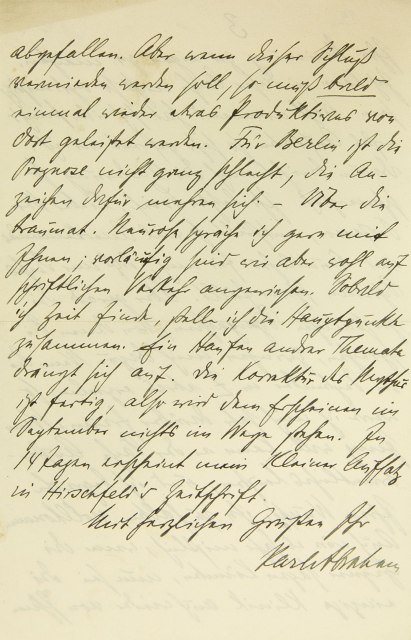 abgefallen. Aber wenn dieser Schluß
vermieden werden soll, so muß bald
einmal wieder etwas Produktives von
dort geleistet werden. Für Berlin ist die
Prognose nicht ganz schlecht, die An-
zeichen dafür mehren sich. – Über die
traumat. Neurose spräche ich gern mit
Ihnen; vorläufig sind wir aber wohl auf
schriftlichen Verkehr angewiesen. Sobald
ich Zeit finde, stelle ich die Hauptpunkte
zusammen. Ein Haufen andrer Themata
drängt sich auf. Die Korrektur des
ist fertig, also wird dem Erscheinen im
September nichts im Wege stehen. In
14 Tagen erscheint mein kleiner Aufsatz
in Hirschfeld's Zeitschrift.
Mit herzlichen Grüßen Ihr
Karl Abraham